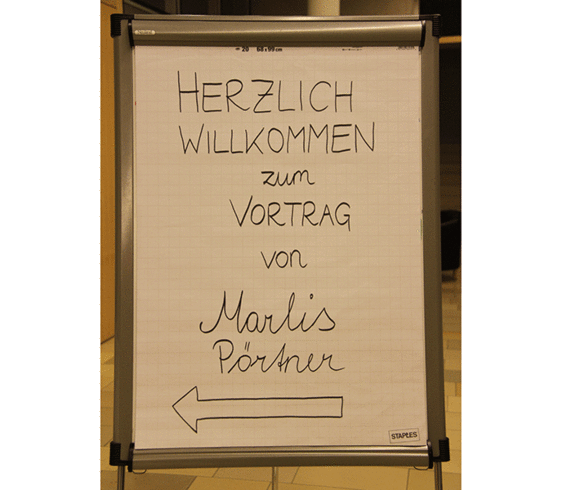 20 68 x 99 cm
HERZLICH
WILLKOMMEN
zum
VORTRAG
von
Marlis
Pörtner
STAPLES